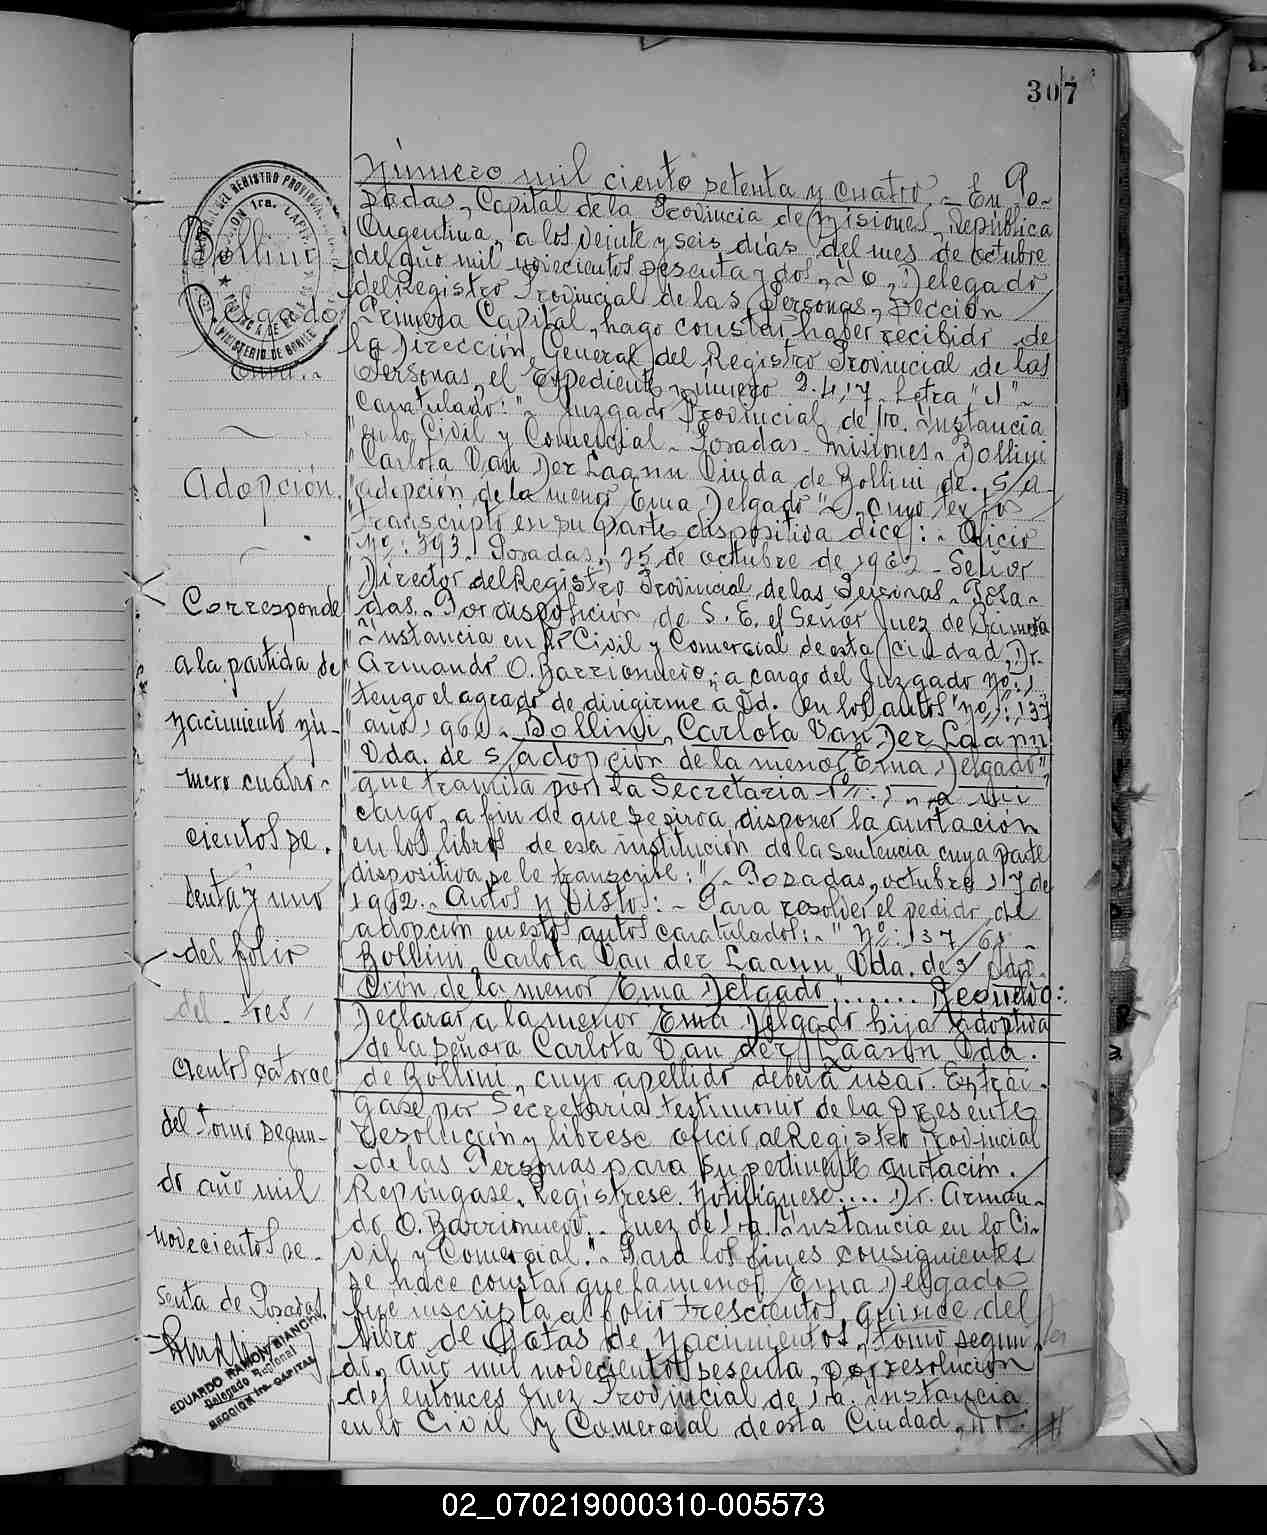 307
Número mil ciento setenta y cuatro. - En Po-
sadas, Capital de la Provincia de Misiones, República
Argentina, a los veinte y seis días del mes de octubre
del año mil novecientos sesenta y dos, Yo, Delegado
del Registro Provincial de las Personas, Sección
Primera Capital, hago constar haber recibido de
la Dirección General del Registro Provincial de las
Personas, el Expediente número 2.417 Letra "J"
Caratulado: "Juzgado Provincial de 1ra. Instancia
en lo Civil y Comercial - Posadas - Misiones - Bollini
Carlota Van Der Laann Viuda de Bollini de. S/a
"adopción de la menor Ema Delgado", cuyo texto
transcripto en su parte dispositiva dice: - Oficio
"Nº: 393. Posadas, 25 de octubre de 1962 - Señor
Director del Registro Provincial de las Personas - Posa-
das. Por disposición de S. E. el Señor Juez de Primera
Instancia en lo Civil y Comercial de esta Ciudad, Dr.
Armando O. Barrionuevo, a cargo del Juzgado Nº: 1
tengo el agrado de dirigirme a Ud. en los autos "Nº: 137
año 1961 - Bollini, Carlota Van Der Laann
Vda. de s/adopción de la menor Ema Delgado",
"que tramita por la Secretaría Nº: 1, a mi
cargo, a fin de que se sirva disponer la anotación
en los libros de esa institución de la sentencia cuya parte
dispositiva se le transcribe: "Posadas, octubre 17 de
1962. - Autos y Vistos: - Para resolver el pedido de
adopción en estos autos caratulados: - "Nº: 137/61 -
Bollini, Carlota Van der Laann, Vda. de s/ adop-
ción de la menor Ema Delgado", ...... Resuelvo:
Declarar a la menor Ema Delgado hija adoptiva
de la señora Carlota Van der Laann Vda.
de Bollini, cuyo apellido deberá usar. Entré-
gase por Secretaría testimonio de la presente
resolución y líbrese oficio al Registro Provincial
de las Personas para su pertinente anotación.
Repóngase, Regístrese. Notifíquese.... Dr. Arman-
do O. Barrionuevo.. Juez de 1ra. Instancia en lo Ci-
vil y Comercial." - Para los fines consiguientes
se hace constar que la menor Ema Delgado
fue inscripta al folio trescientos quince del
libro de Actas de Nacimientos, tomo segun-
do, año mil novecientos sesenta, por resolución
del entonces Juez Provincial de 1ra. Instancia
en lo Civil y Comercial de esta Ciudad, Dr.
Bollini
Delgado
Ema.
Adopción.
Corresponde
a la partida de
nacimiento nú-
mero cuatro-
cientos se.
tenta y uno
del folio
del tres
cientos catorce
del Tomo segun-
do año mil
novecientos se-
senta de Posadas
EDUARDO RAMON BIANCHI
Delegado Regional
SECCION 1ra. CAPITAL
02_070219000310-005573